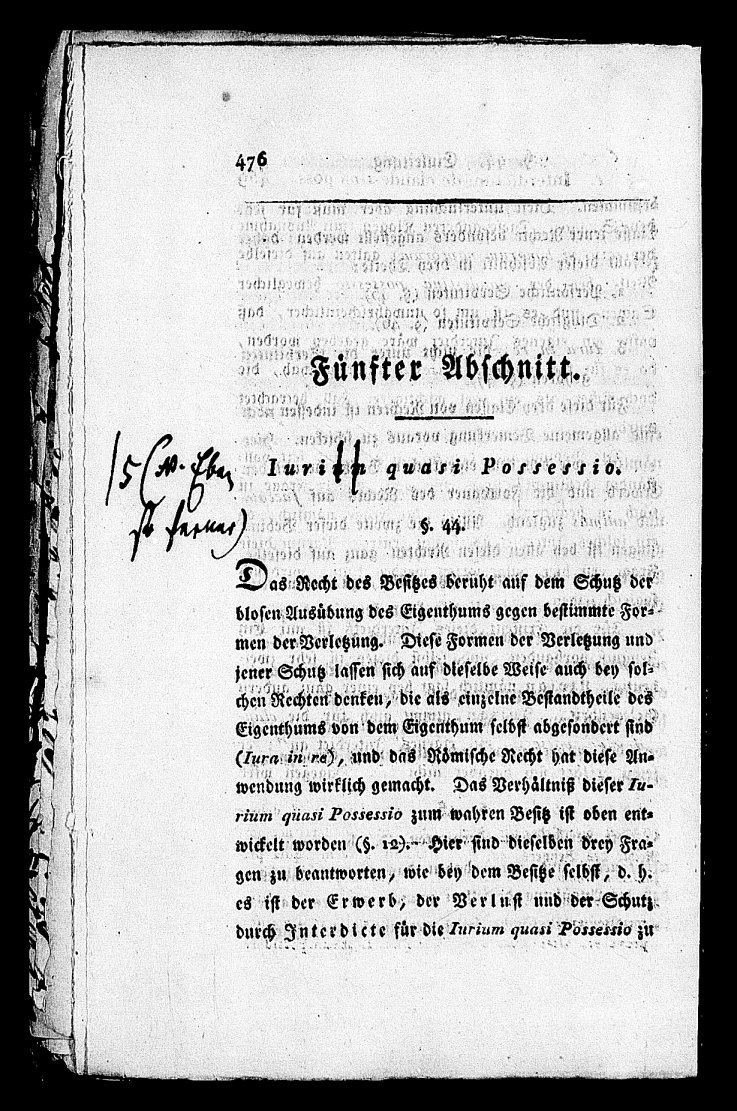 476
Fünfter Abschnitt.
Iurium quasi Possessio.
§. 44.
Das Recht des Besitzes beruht auf dem Schutz der
blosen Ausübung des Eigenthums gegen bestimmte For-
men der Verletzung. Diese Formen der Verletzung und
jener Schutz lassen sich auf dieselbe Weise auch bey sol-
chen Rechten denken, die als einzelne Bestandtheile des
Eigenthums von dem Eigenthum selbst abgesondert sind
(Iura in re), und das Römische Recht hat diese An-
wendung wirklich gemacht. Das Verhältniß dieser Iu-
rium quasi Possessio zum wahren Besitz ist oben ent-
wickelt worden (§. 12). Hier sind dieselben drey Fra-
gen zu beantworten, wie bey dem Besitze selbst, d. h.
es ist der Erwerb, der Verlust und der Schutz
durch Interdicte für die Iurium quasi Possessio zu